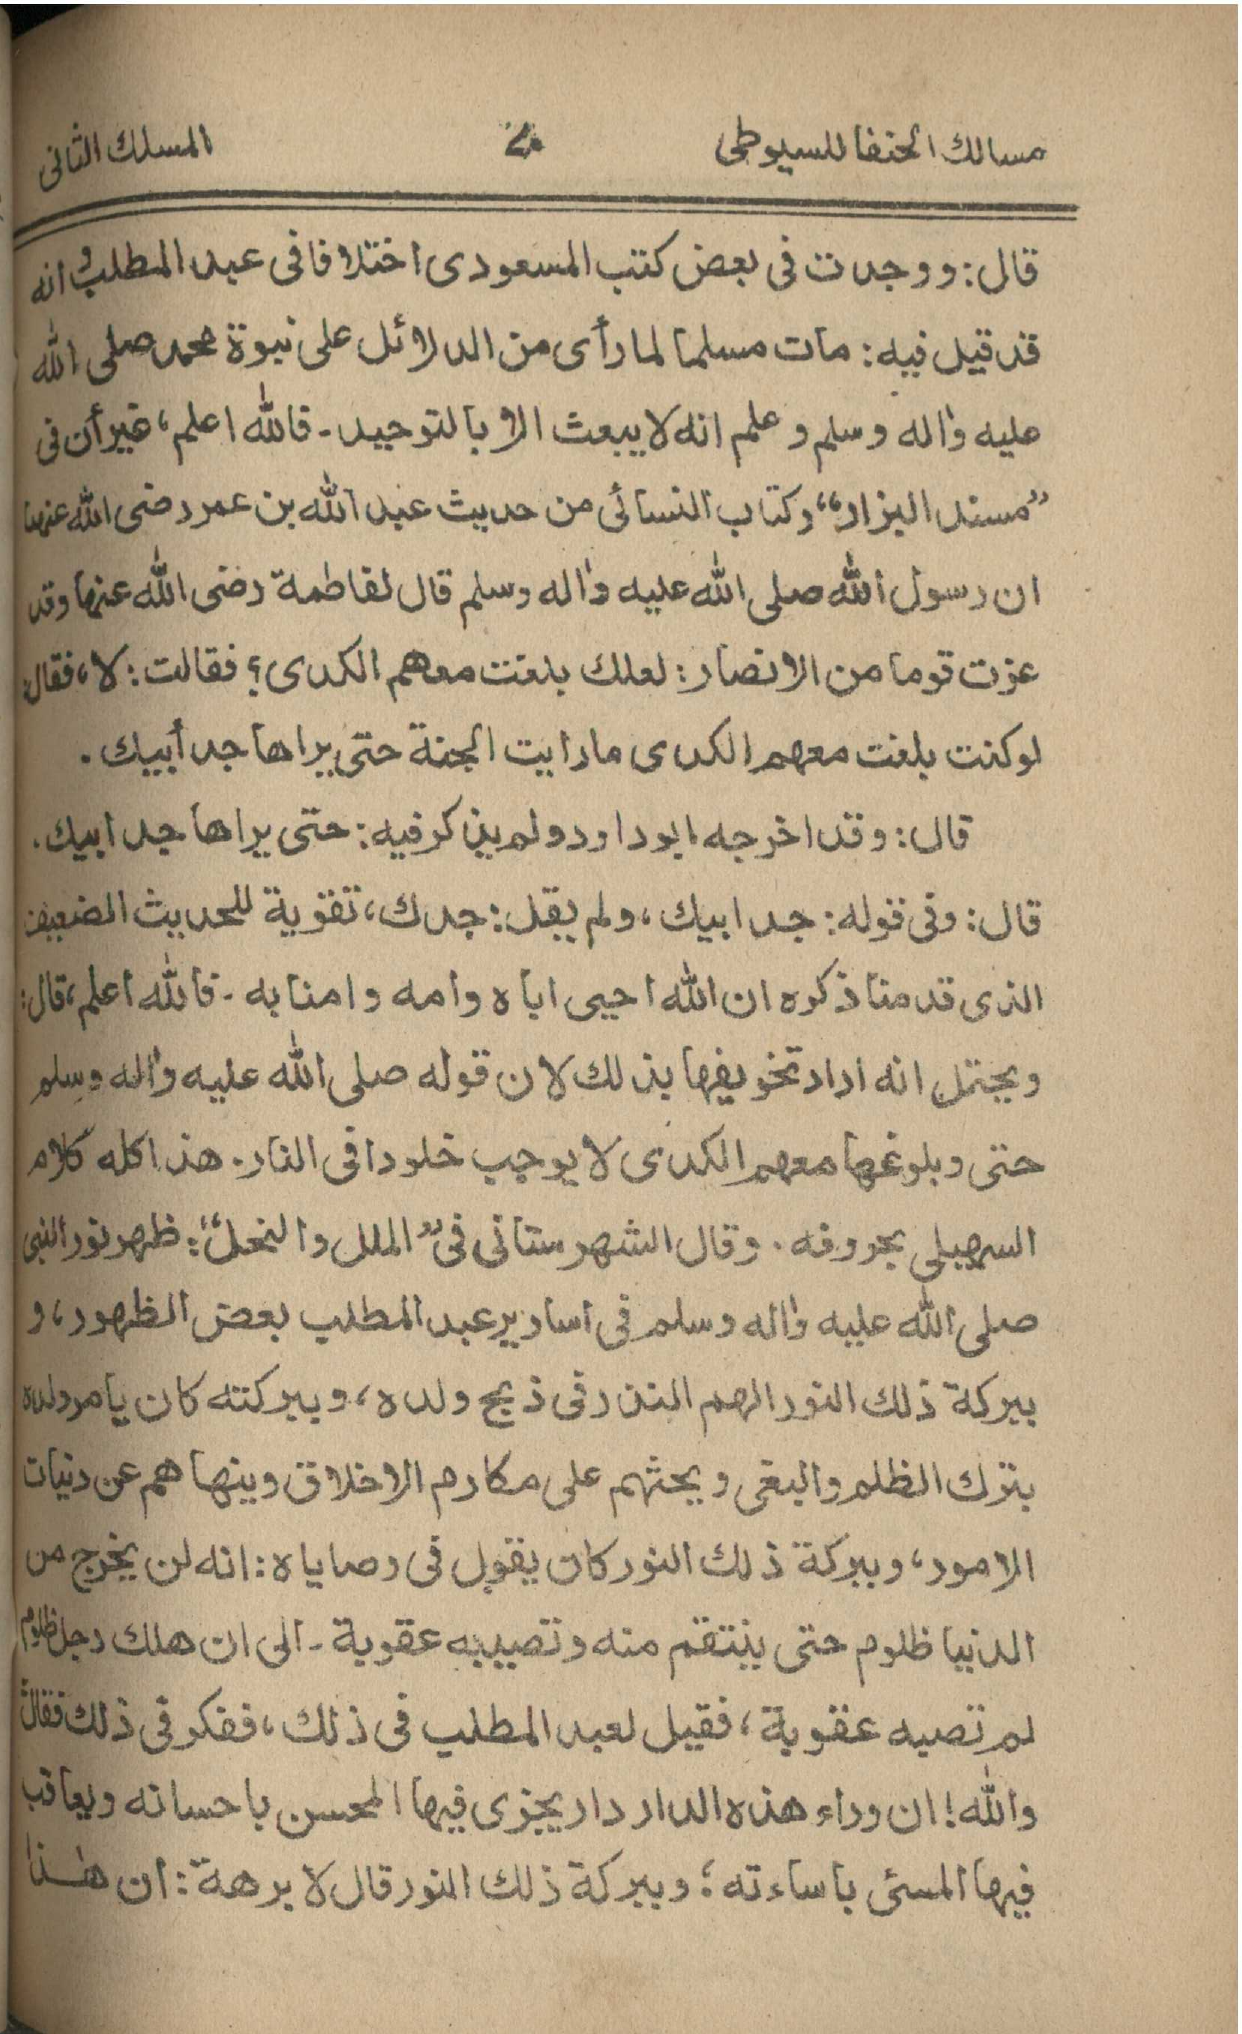 مسالك الحنفا للسيوطى ٤٠ المسلك الثانى
قال: ووجدت فى بعض كتب المسعودى اختلافا فى عبد المطلب و انه
قد قيل فيه: مات مسلما لما رأى من الدلائل على نبوة محمد صلى الله
عليه واله وسلم و علم انه لا يبعث الا بالتوحيد ـ فالله اعلم، غير أن فى
”مسند البزار“ وكتاب النسائى من حديث عبد الله بن عمر رضى الله عنهما
ان رسول الله صلى الله عليه واله وسلم قال لفاطمة رضى الله عنها وقد
عزت قوما من الانصار: لعلك بلغت معهم الكدى؟ فقالت: لا، فقال:
لو كنت بلغت معهم الكدى ما رايت الجنة حتى يراها جد أبيك .
قال: وقد اخرجه ابو داود ولم يذكر فيه: حتى يراها جد ابيك .
قال: وفى قوله: جد ابيك، ولم يقل: جدك، تقوية للحديث الضعيف
الذى قدمنا ذكره ان الله احيى اباه وأمه وامنا به ـ فالله اعلم، قال:
ويحتمل انه اراد تخويفها بذلك لان قوله صلى الله عليه واله وسلم
حتى وبلوغها معهم الكدى لا يوجب خلودا فى النار. هذا كله كلام
السهيلى بحروفه . وقال الشهرستانى فى ”الملل والنحل“: ظهر نور النبى
صلى الله عليه واله وسلم فى اسارير عبد المطلب بعض الظهور، و
ببركة ذلك النور الهم النذر فى ذبح ولده، وببركته كان يامر ولده
بترك الظلم والبغى ويحثهم على مكارم الاخلاق وينهاهم عن دنيات
الامور، وببركة ذلك النور كان يقول فى وصاياه: انه لن يخرج من
الدنيا ظلوم حتى ينتقم منه وتصيبه عقوبة ـ الى ان هلك رجل ظلوم
لم تصبه عقوبة، فقيل لعبد المطلب فى ذلك، ففكر فى ذلك فقال:
والله! ان وراء هذه الدار دار يجزى فيها المحسن باحسانه ويعاقب
فيها المسئى باساءته؛ وببركة ذلك النور قال لابرهة: ان هذا